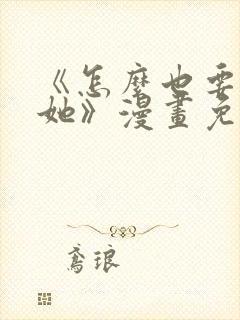 《怎麼也要
她》漫畫免
鸢琅